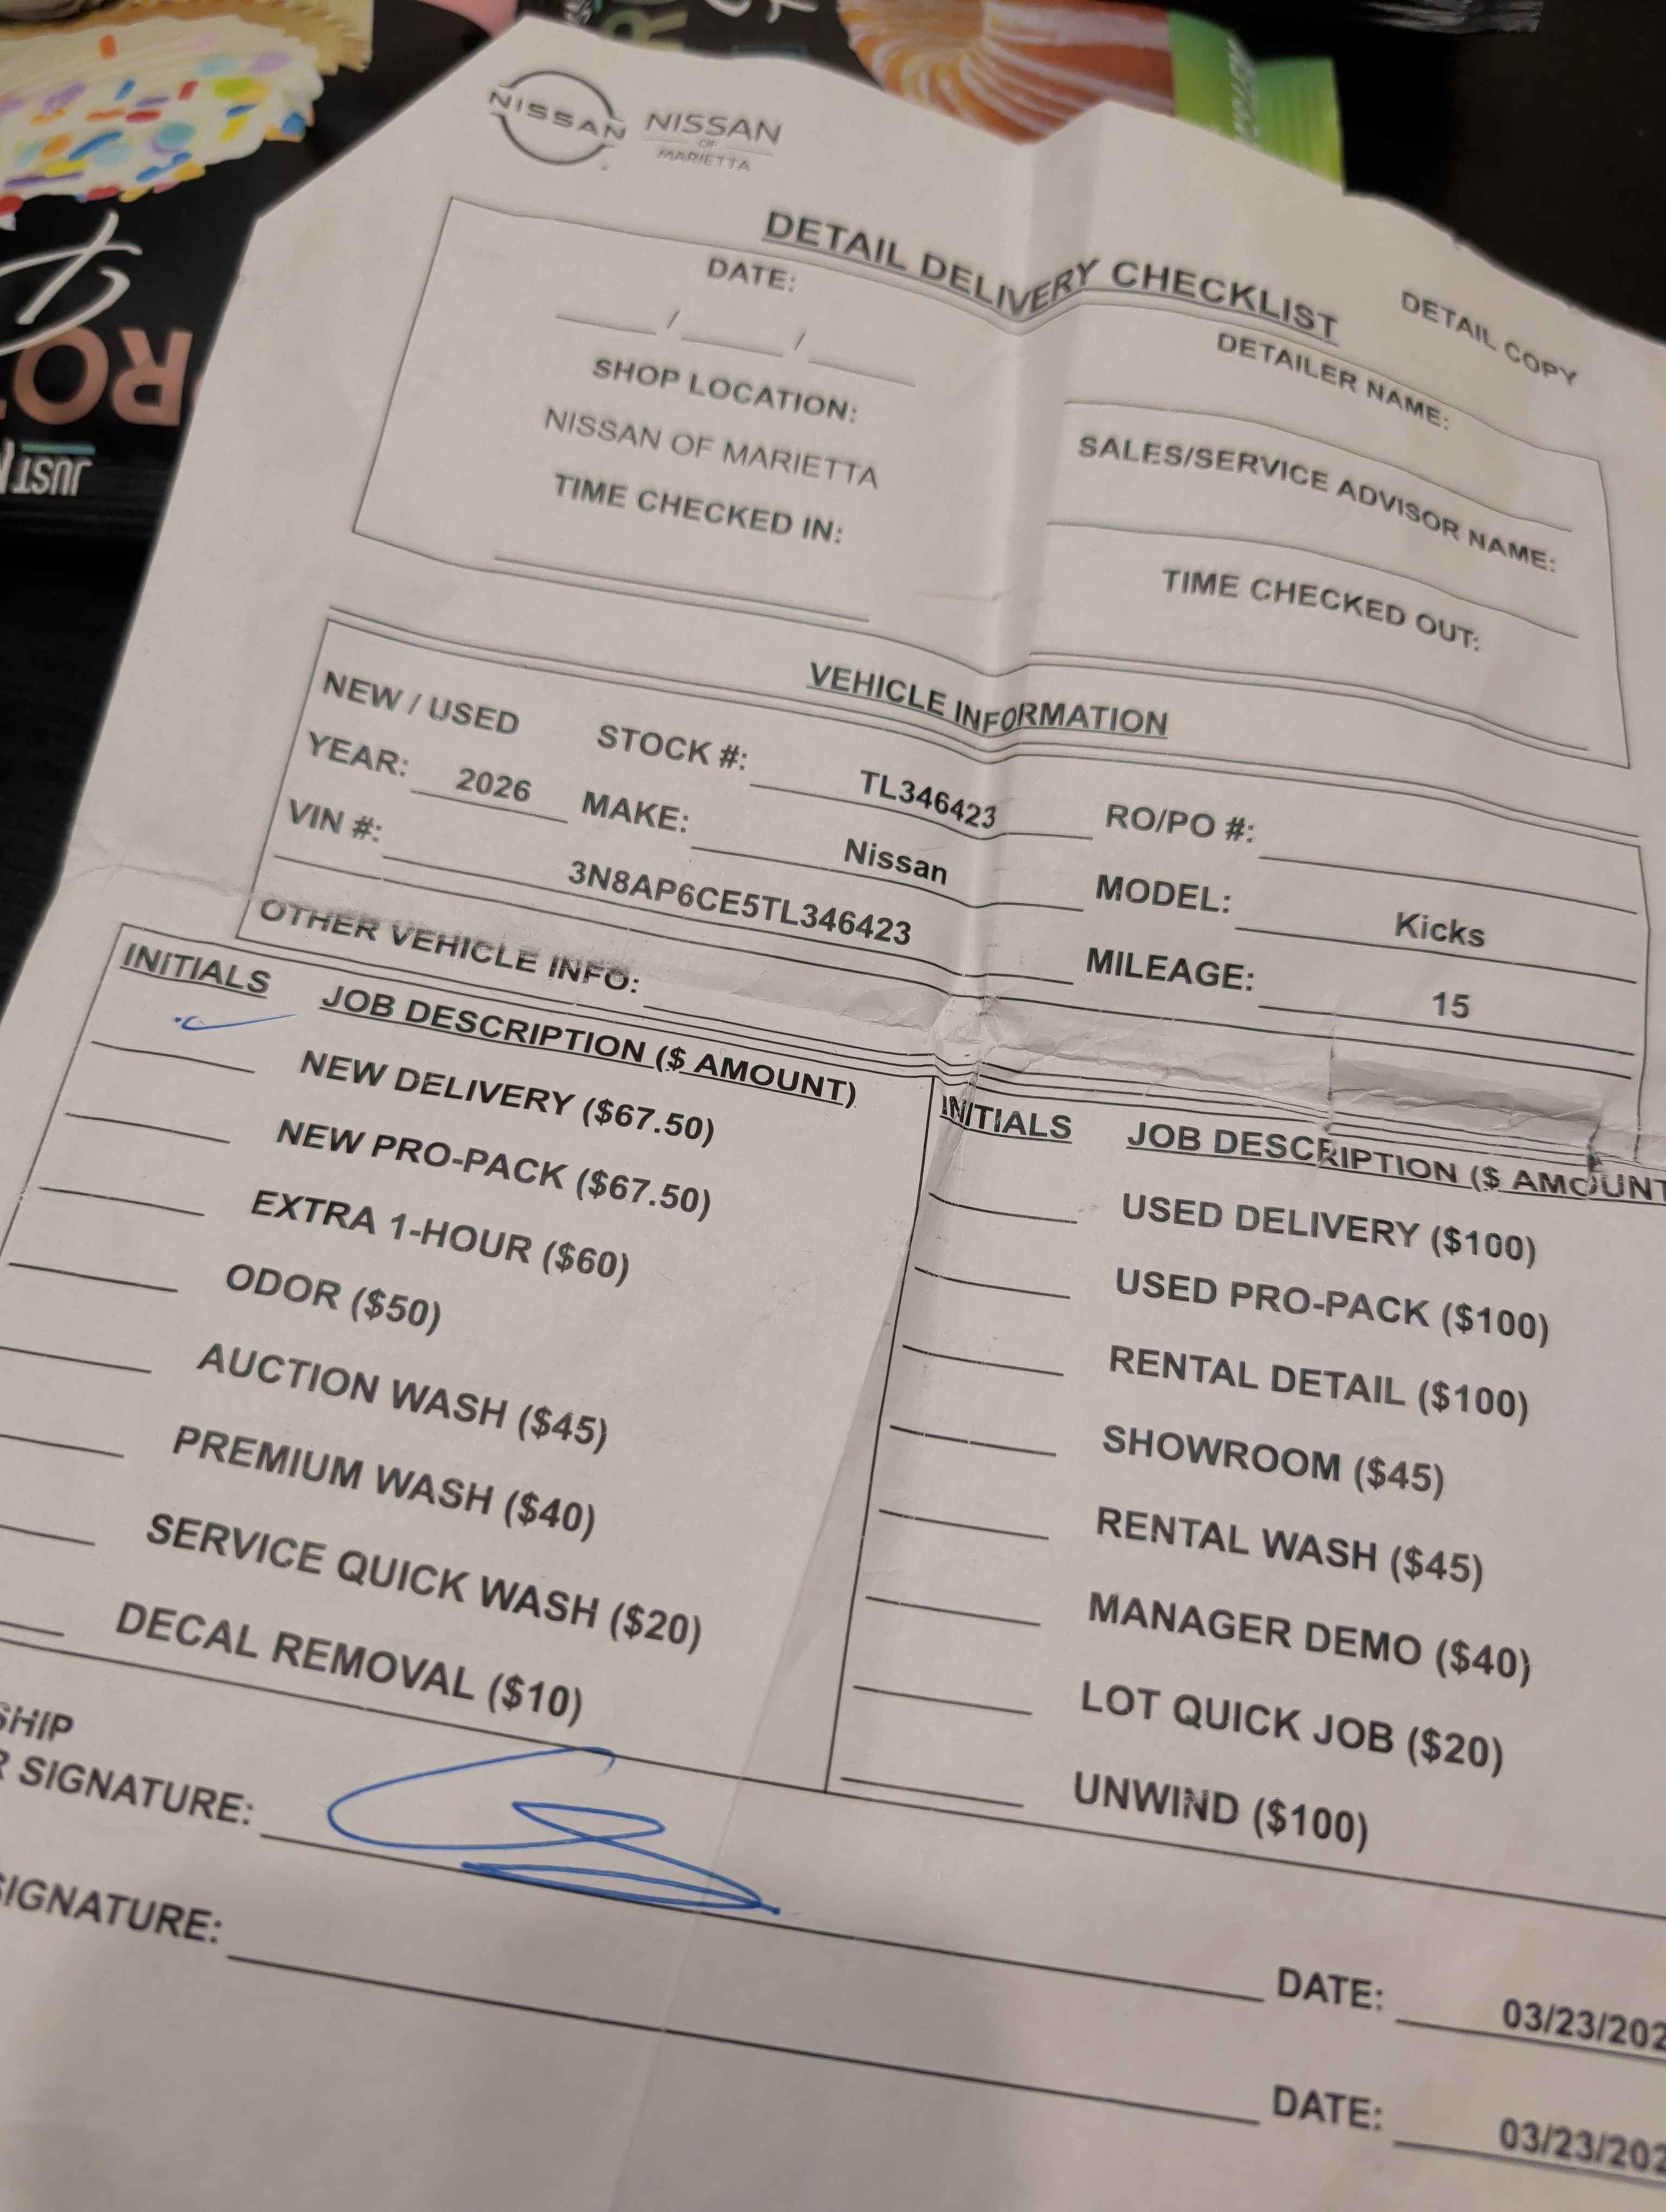 NISSAN
NISSAN
OF
MARIETTA
DETAIL COPY
DETAIL DELIVERY CHECKLIST
DATE:
___/___/___
DETAILER NAME:
SHOP LOCATION:
NISSAN OF MARIETTA
SALES/SERVICE ADVISOR NAME:
TIME CHECKED IN:
TIME CHECKED OUT:
VEHICLE INFORMATION
NEW / USED STOCK #: TL346423 RO/PO #:
YEAR: 2026 MAKE: Nissan MODEL: Kicks
VIN #: 3N8AP6CE5TL346423 MILEAGE: 15
OTHER VEHICLE INFO:
INITIALS JOB DESCRIPTION ($ AMOUNT)
NEW DELIVERY ($67.50)
NEW PRO-PACK ($67.50)
EXTRA 1-HOUR ($60)
ODOR ($50)
AUCTION WASH ($45)
PREMIUM WASH ($40)
SERVICE QUICK WASH ($20)
DECAL REMOVAL ($10)
INITIALS JOB DESCRIPTION ($ AMOUNT
USED DELIVERY ($100)
USED PRO-PACK ($100)
RENTAL DETAIL ($100)
SHOWROOM ($45)
RENTAL WASH ($45)
MANAGER DEMO ($40)
LOT QUICK JOB ($20)
UNWIND ($100)
SHIP
R SIGNATURE: DATE: 03/23/202
SIGNATURE: DATE: 03/23/202
JUST